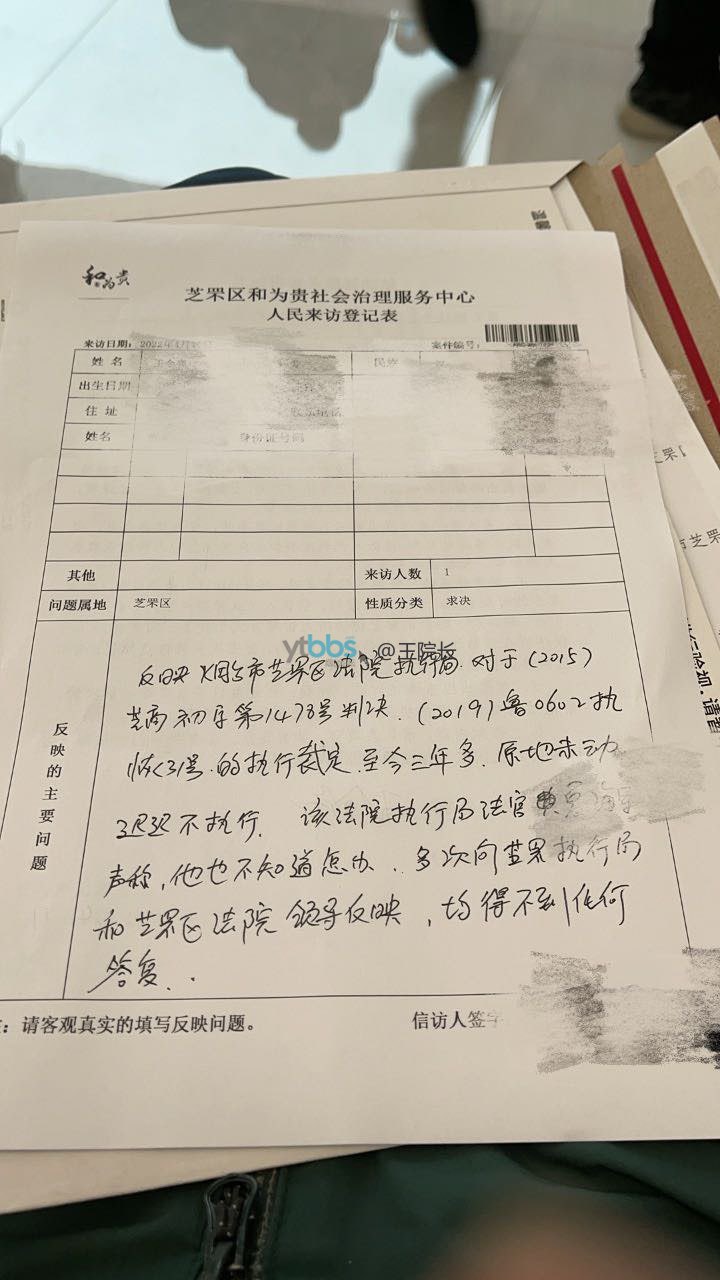 和为贵
芝罘区和为贵社会治理服务中心
人民来访登记表
来访日期: 2022年4月 案件编号:
姓 名 民族
出生日期
住 址
姓名 身份证号码
其他 来访人数 1
问题属地 芝罘区 性质分类 求决
ytbbs @王院长
反映的主要问题
反映烟台市芝罘区法院执行局对于(2015)
芝商初字第1478号判决.(2019)鲁0602执
恢31号.的执行裁定.至今三年多.原地未动
迟迟不执行. 该法院执行局法官
声称,他也不知道怎办.多次向芝罘执行局
和芝罘区法院领导反映,均得不到任何
答复..
: 请客观真实的填写反映问题。 信访人签字